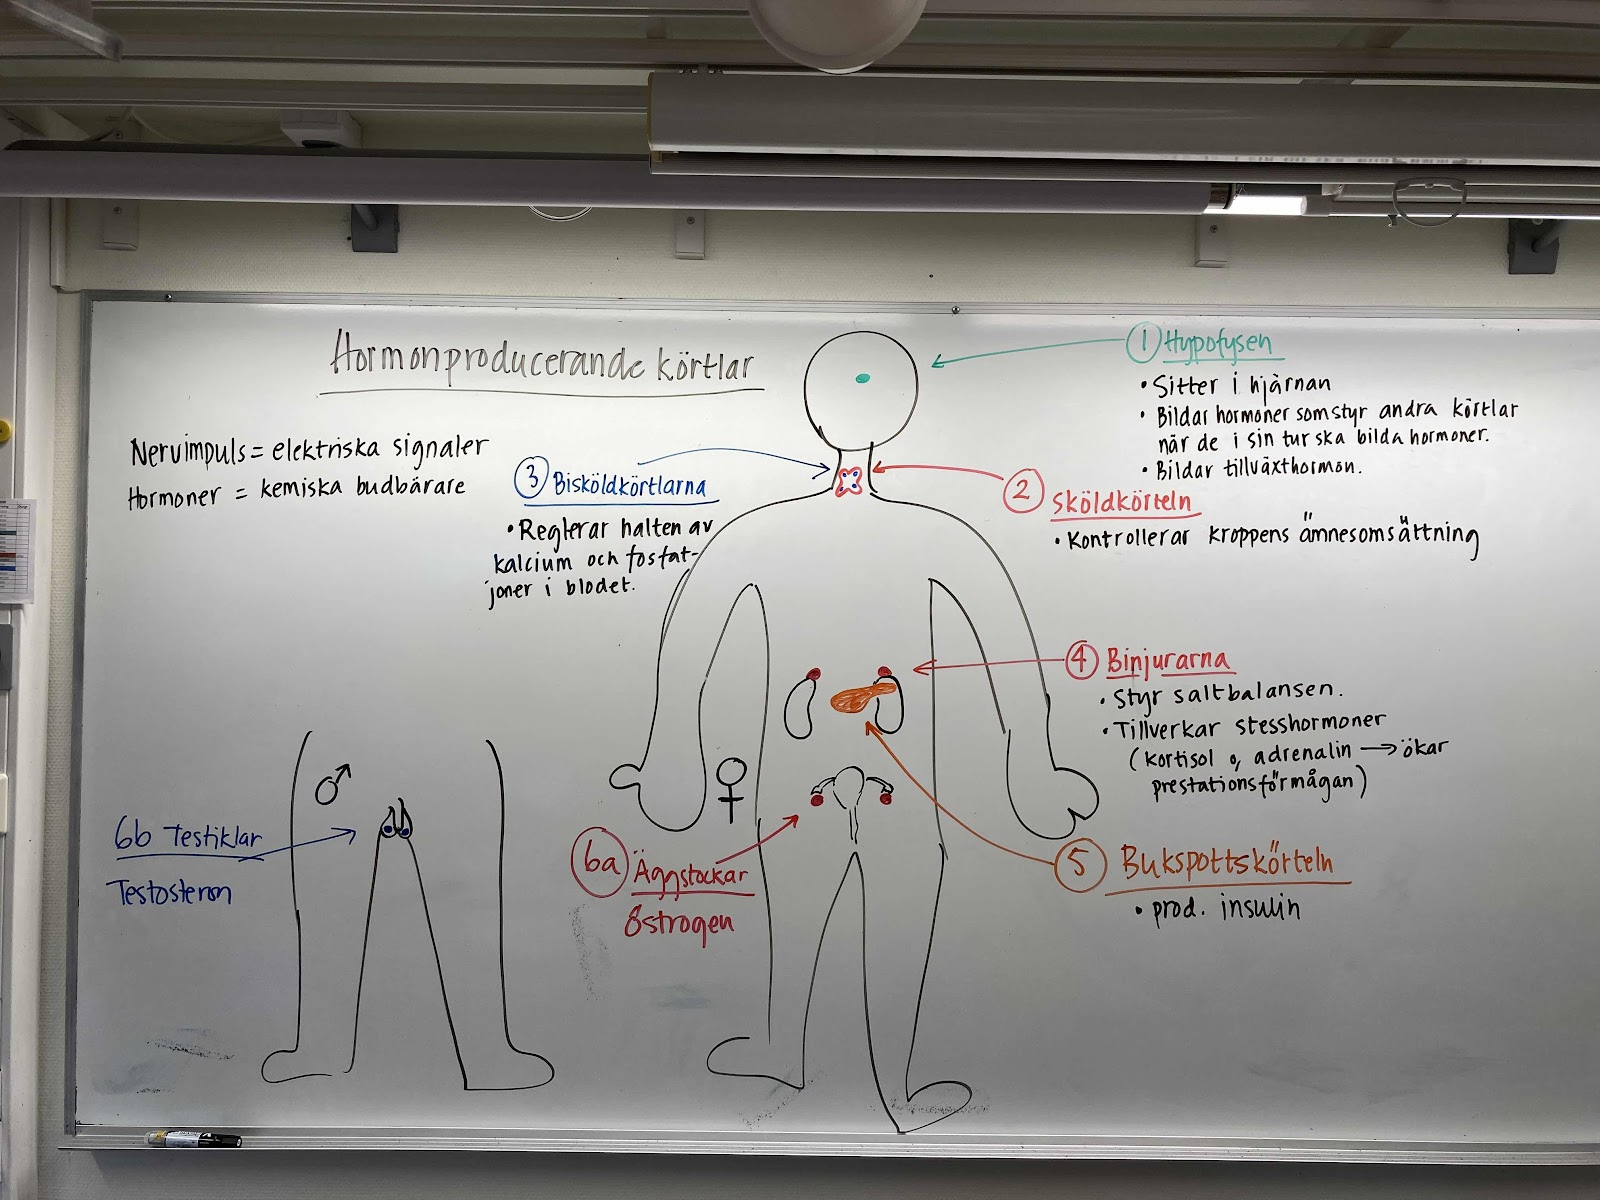 Hormonproducerande körtlar
Nervimpuls = elektriska signaler
Hormoner = kemiska budbärare
1 Hypofysen
• Sitter i hjärnan
• Bildar hormoner som styr andra körtlar
när de i sin tur ska bilda hormoner.
• Bildar tillväxthormon.
2 Sköldkörteln
• Kontrollerar kroppens ämnesomsättning
3 Bisköldkörtlarna
• Reglerar halten av
kalcium och fosfat-
joner i blodet.
4 Binjurarna
• Styr saltbalansen.
• Tillverkar stesshormoner
(kortisol o, adrenalin → ökar
prestationsförmågan)
5 Bukspottskörteln
• prod. insulin
♀
6a Äggstockar
Östrogen
♂
6b Testiklar
Testosteron